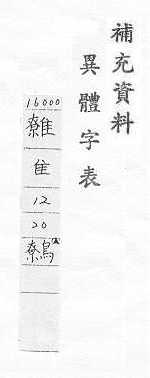 補充資料
異體字表
16000
雜
隹
12
20
鷯